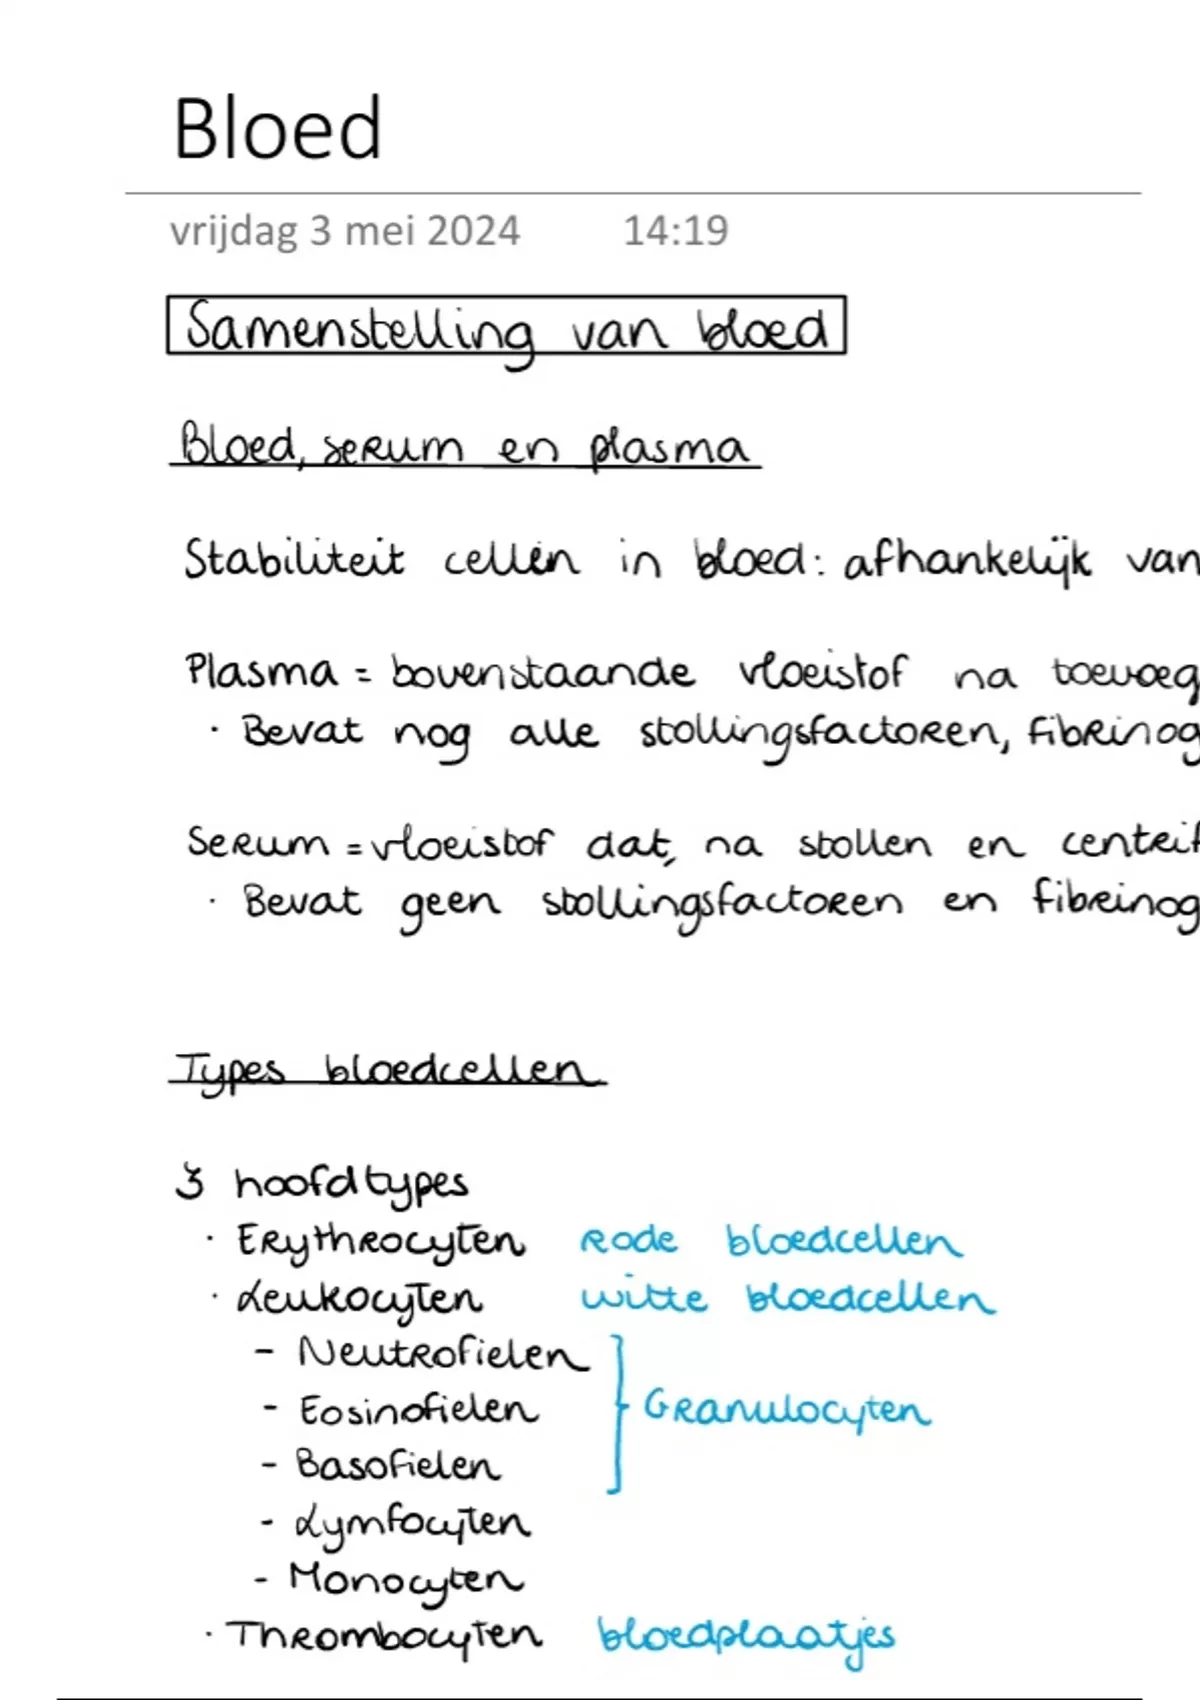 Bloed
vrijdag 3 mei 2024 14:19
Samenstelling van bloed
Bloed, serum en plasma
Stabiliteit cellen in bloed: afhankelijk van
Plasma = bovenstaande vloeistof na toevoeg
· Bevat nog alle stollingsfactoren, fibrinog
Serum = vloeistof dat, na stollen en centrif
· Bevat geen stollingsfactoren en fibrinog
Types bloedcellen
3 hoofdtypes
· Erythrocyten rode bloedcellen
· Leukocyten witte bloedcellen
- Neutrofielen
- Eosinofielen Granulocyten
- Basofielen
- Lymfocyten
- Monocyten
· Thrombocyten bloedplaatjes